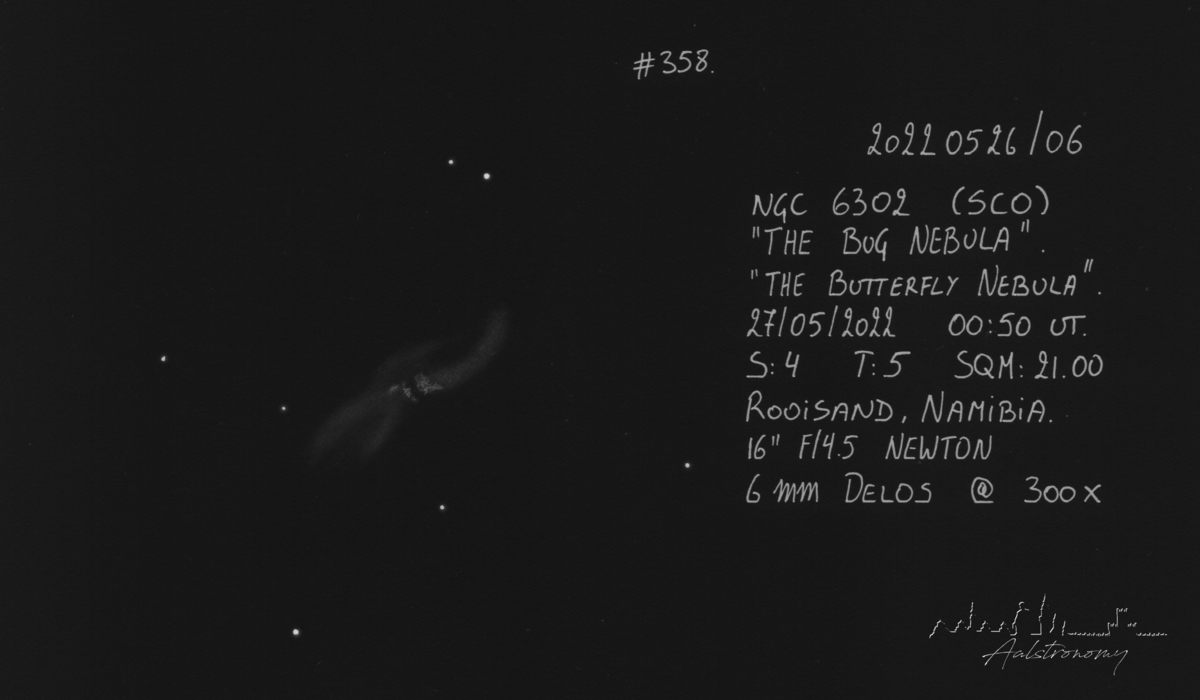 #358.
20220526/06
NGC 6302 (SCO)
"THE BUG NEBULA".
"THE BUTTERFLY NEBULA".
27/05/2022 00:50 UT.
S:4 T:5 SQM: 21.00
ROOISAND, NAMIBIA.
16" F/4.5 NEWTON
6 mm DELOS @ 300x
Aalstronomy